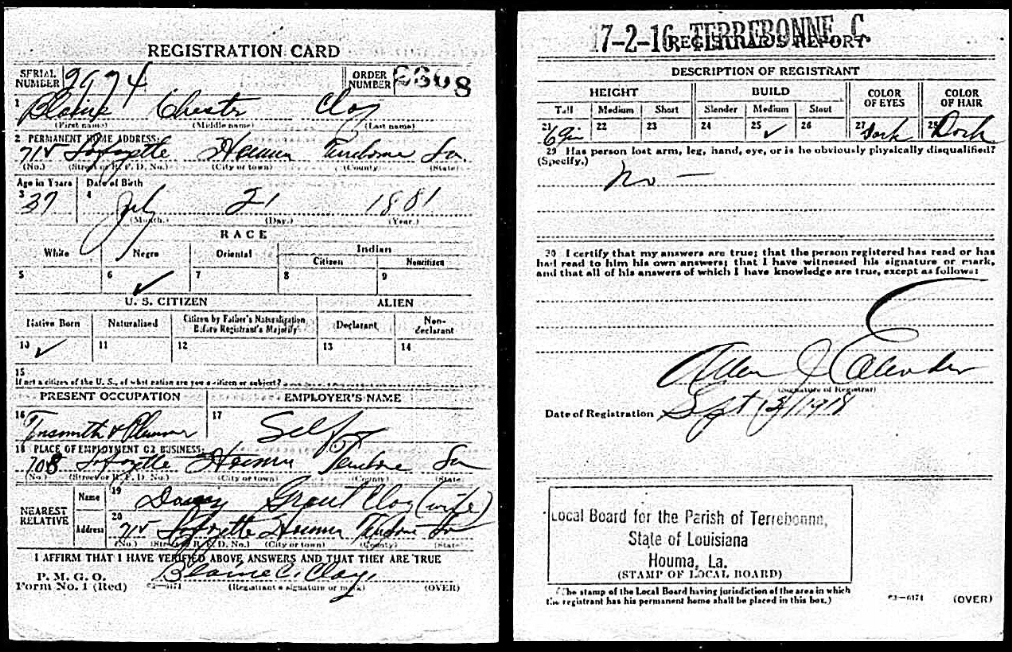 REGISTRATION CARD
SERIAL NUMBER 9674 ORDER NUMBER
1 Blaine Chester Clay
(First name) (Middle name) (Last name)
2 PERMANENT HOME ADDRESS:
715 Lafayette Houma La
(No.) (Street or R. F. D. No.) (City or town) (County) (State)
Age in Years Date of Birth
3 37 4 July 21 1881
(Month.) (Day.) (Year.)
RACE
White Negro Oriental Indian
Citizen Noncitizen
5 6 ✓ 7 8 9
U. S. CITIZEN ALIEN
Native Born Naturalized Citizen by Father's Naturalization Before Registrant's Majority Declarant Non-declarant
10 ✓ 11 12 13 14
15
If not a citizen of the U. S., of what nation are you a citizen or subject?
PRESENT OCCUPATION EMPLOYER'S NAME
16 Tinsmith & Plumber 17 Self
18 PLACE OF EMPLOYMENT OR BUSINESS:
708 Lafayette Houma La
(No.) (Street or R. F. D. No.) (City or town) (County) (State)
NEAREST RELATIVE
Name 19 Grant Clay (wife)
Address 20 715 Lafayette Houma
(No.) (Street or R. F. D. No.) (City or town) (County) (State)
I AFFIRM THAT I HAVE VERIFIED ABOVE ANSWERS AND THAT THEY ARE TRUE
P. M. G. O.
Form No. 1 (Red) Blaine C. Clay
(Registrant's signature or mark) (OVER)
17-2-16 TERREBONNE, C
REGISTRAR'S REPORT
DESCRIPTION OF REGISTRANT
HEIGHT BUILD COLOR OF EYES COLOR OF HAIR
Tall Medium Short Slender Medium Stout
21 22 23 24 25 ✓ 26 27 Dark 28 Dark
29 Has person lost arm, leg, hand, eye, or is he obviously physically disqualified?
(Specify.)
No —
30 I certify that my answers are true; that the person registered has read or has
had read to him his own answers; that I have witnessed his signature or mark,
and that all of his answers of which I have knowledge are true, except as follows:
Allen J
(Signature of Registrar)
Date of Registration Sept 12/1918
Local Board for the Parish of Terrebonne,
State of Louisiana
Houma, La.
(STAMP OF LOCAL BOARD)
(The stamp of the Local Board having jurisdiction of the area in which
the registrant has his permanent home shall be placed in this box.)
03—6171 (OVER)